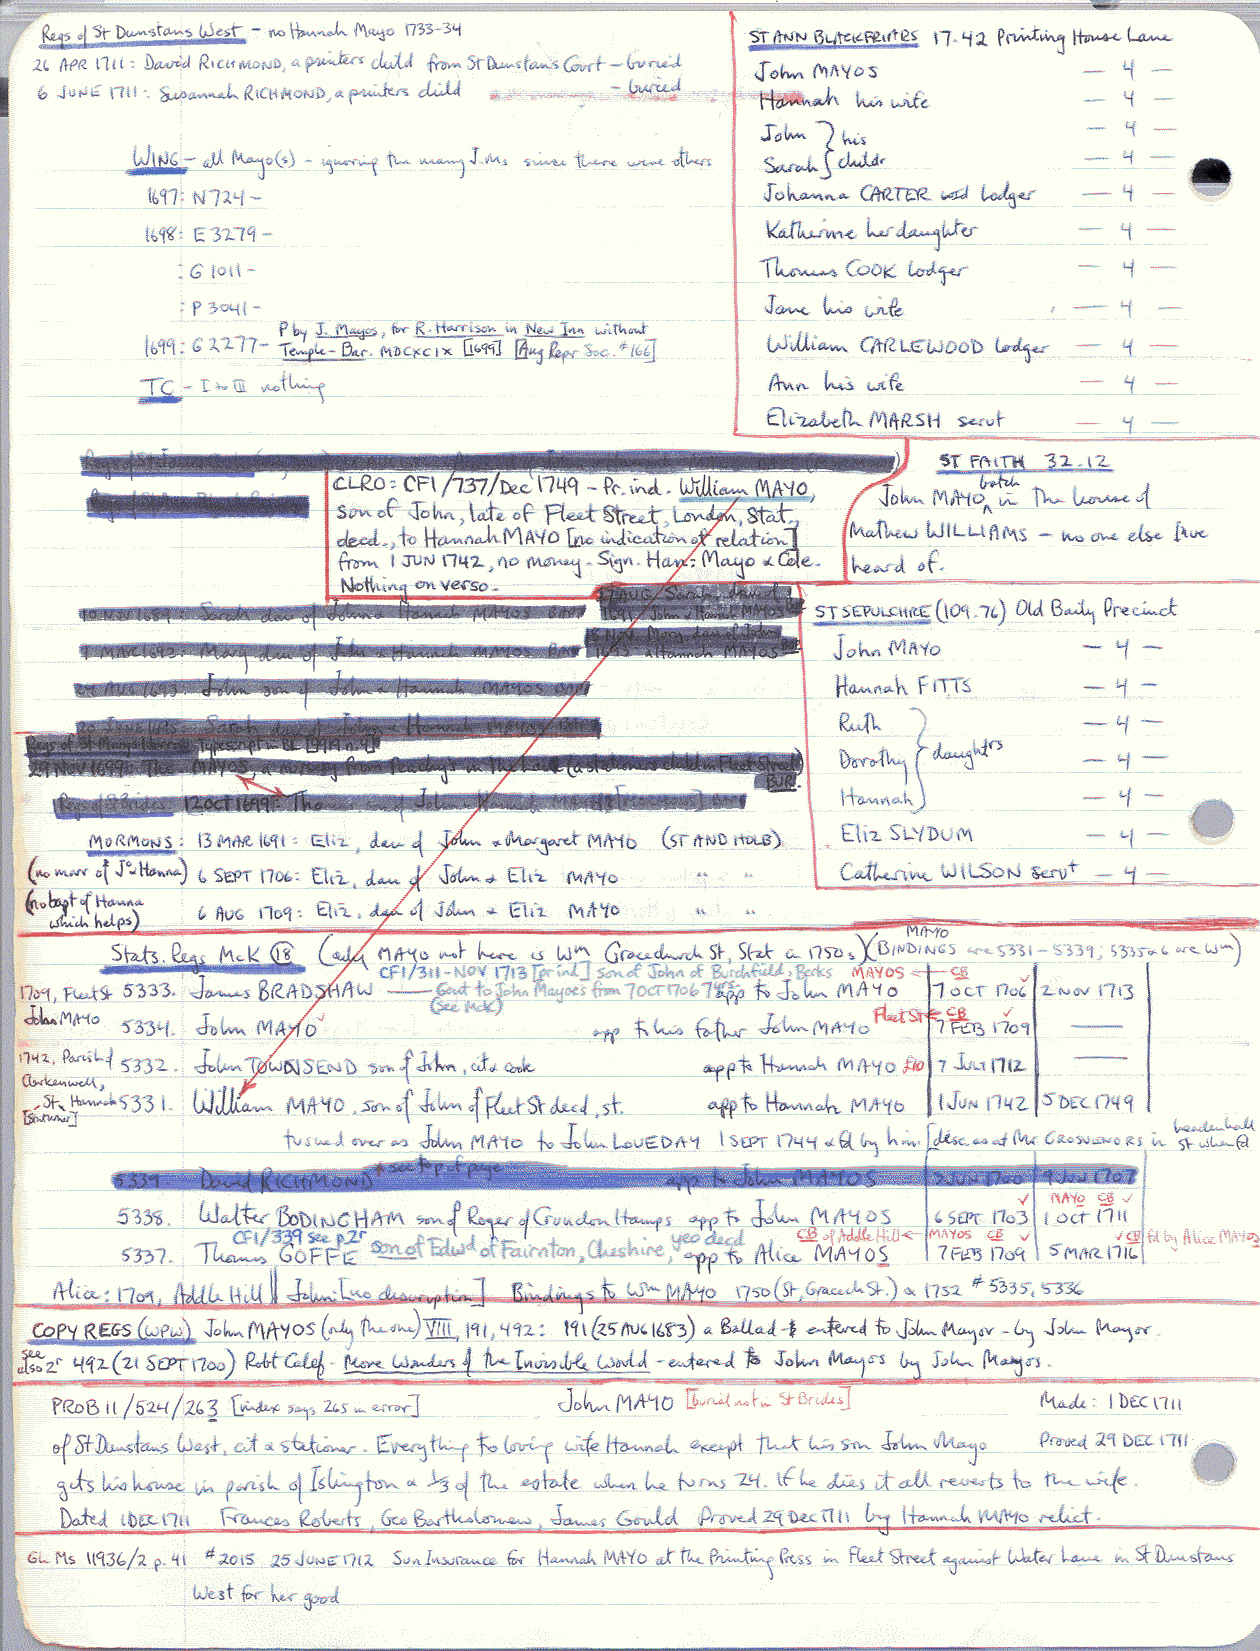 Regs of St Dunstans West - no Hannah Mayo 1733-34
26 APR 1711: David RICHMOND, a printers child from St Dunstan's Court - buried
6 JUNE 1711: Susannah RICHMOND, a printers child - buried
WING - all Mayo(s) - ignoring the many J.Ms since there were others
1697: N724 -
1698: E3279 -
: G1011 -
: P3041 -
1699: G2277 - P by J. Mayos, for R. Harrison in New Inn without
Temple-Bar. MDCXCIX [1699] [Aug Repr Soc. #166]
TC - I to III nothing
ST ANN BLACKFRIARS 17.42 Printing House Lane
John MAYOS - 4 -
Hannah his wife - 4 -
John } his - 4 -
Sarah } childr - 4 -
Johanna CARTER wid lodger - 4 -
Katherine her daughter - 4 -
Thomas COOK lodger - 4 -
Jane his wife - 4 -
William CARLEWOOD lodger - 4 -
Ann his wife - 4 -
Elizabeth MARSH servt - 4 -
CLRO: CF1/737/Dec 1749 - Pr. ind. William MAYO,
son of John, late of Fleet Street, London, Stat.,
decd., to Hannah MAYO [no indication of relation]
from 1 JUN 1742, no money. Sign. Han: Mayo & Cole.
Nothing on verso.
ST FAITH 32.12
John MAYO batch in the house of
Mathew WILLIAMS - no one else I've
heard of.
10 NOV 1689: Sarah dau of John & Hannah MAYOS BAP
17 AUG Sarah, dau of
1691 John & Hannah MAYOS BUR
1 MAR 1692: Mary dau of John & Hannah MAYOS BAP
18 Nov Mary dau of John
1693 & Hannah MAYOS BUR
27 AUG 1693: John son of John & Hannah MAYOS BAP
Sarah dau of John & Hannah MAYOS BAP
29 NOV 1699: Tho MAYOS, a nursery from
BUR
Regs of St Brides: 12 OCT 1699: Thomas son of John & Hannah
MORMONS: 13 MAR 1691: Eliz, dau of John & Margaret MAYO (ST AND HOLB)
(no marr of Jo & Hanna) 6 SEPT 1706: Eliz, dau of John & Eliz MAYO " "
(no bapt of Hanna which helps) 6 AUG 1709: Eliz, dau of John & Eliz MAYO " "
ST SEPULCHRE (109.76) Old Baily Precinct
John MAYO - 4 -
Hannah FITTS - 4 -
Ruth - 4 -
Dorothy } daughtrs - 4 -
Hannah - 4 -
Eliz SLYDUM - 4 -
Catherine WILSON servt - 4 -
Stats. Regs McK (18) (only MAYO not here is Wm Gracechurch St, Stat in 1750s) (MAYO BINDINGS are 5331-5339; 5335 & 6 are Wm)
CF1/311 - NOV 1713 [pr ind] son of John of Burchfield, Berks MAYOS ← CB
1709, Fleet St 5333. James BRADSHAW - Gent to John Mayoes from 7 OCT 1706 7 yrs. app to John MAYO 7 OCT 1706 2 NOV 1713
(see McK)
John MAYO 5334. John MAYO app to his father John MAYO Fleet St ← CB 7 FEB 1709 -
1742, Parish of Clerkenwell, St, Hannah
5332. John TOWNSEND son of John, cit & cook app to Hannah MAYO £10 7 JULY 1712 -
5331. William MAYO, son of John of Fleet St decd, st. app to Hannah MAYO 1 JUN 1742 5 DEC 1749
turned over as John MAYO to John LOVEDAY 1 SEPT 1744 & fd by him [desc as at Mr GROSVENORS in Leadenhall St when fd
5339. David RICHMOND * see top of page app to John MAYOS 2 JUN 1700 9 JUN 1707
MAYO CB
5338. Walter BODINGHAM son of Roger of Crondon Hamps app to John MAYOS 6 SEPT 1703 1 OCT 1711
CF1/339 see p.2r yeo decd CB of Addle Hill ← MAYOS CB CB fd by Alice MAYOS
5337. Thomas GOFFE son of Edwd of Fairnton, Cheshire, app to Alice MAYOS 7 FEB 1709 5 MAR 1716
Alice: 1709, Addle Hill || John: [no description] Bindings to Wm MAYO 1750 (St, Gracech St.) & 1752 #5335, 5336
COPY REGS (WPW) John MAYOS (only the one) VIII, 191, 492: 191 (25 AUG 1683) a Ballad - entered to John Mayor - by John Mayor.
see also 2r 492 (21 SEPT 1700) Robt Calef - More Wonders of the Invisible World - entered to John Mayos by John Mayos.
PROB 11/524/263 [index says 265 in error] John MAYO [burial not in St Brides] Made: 1 DEC 1711
of St Dunstans West, cit & stationer. Everything to loving wife Hannah except that his son John Mayo Proved 29 DEC 1711
gets his house in parish of Islington & 1/3 of the estate when he turns 24. If he dies it all reverts to the wife.
Dated 1 DEC 1711 Frances Roberts, Geo Bartholomew, James Gould Proved 29 Dec 1711 by Hannah MAYO relict.
GL Ms 11936/2 p.41 #2015 25 JUNE 1712 Sun Insurance for Hannah MAYO at the Printing Press in Fleet Street against Water Lane in St Dunstans
West for her good